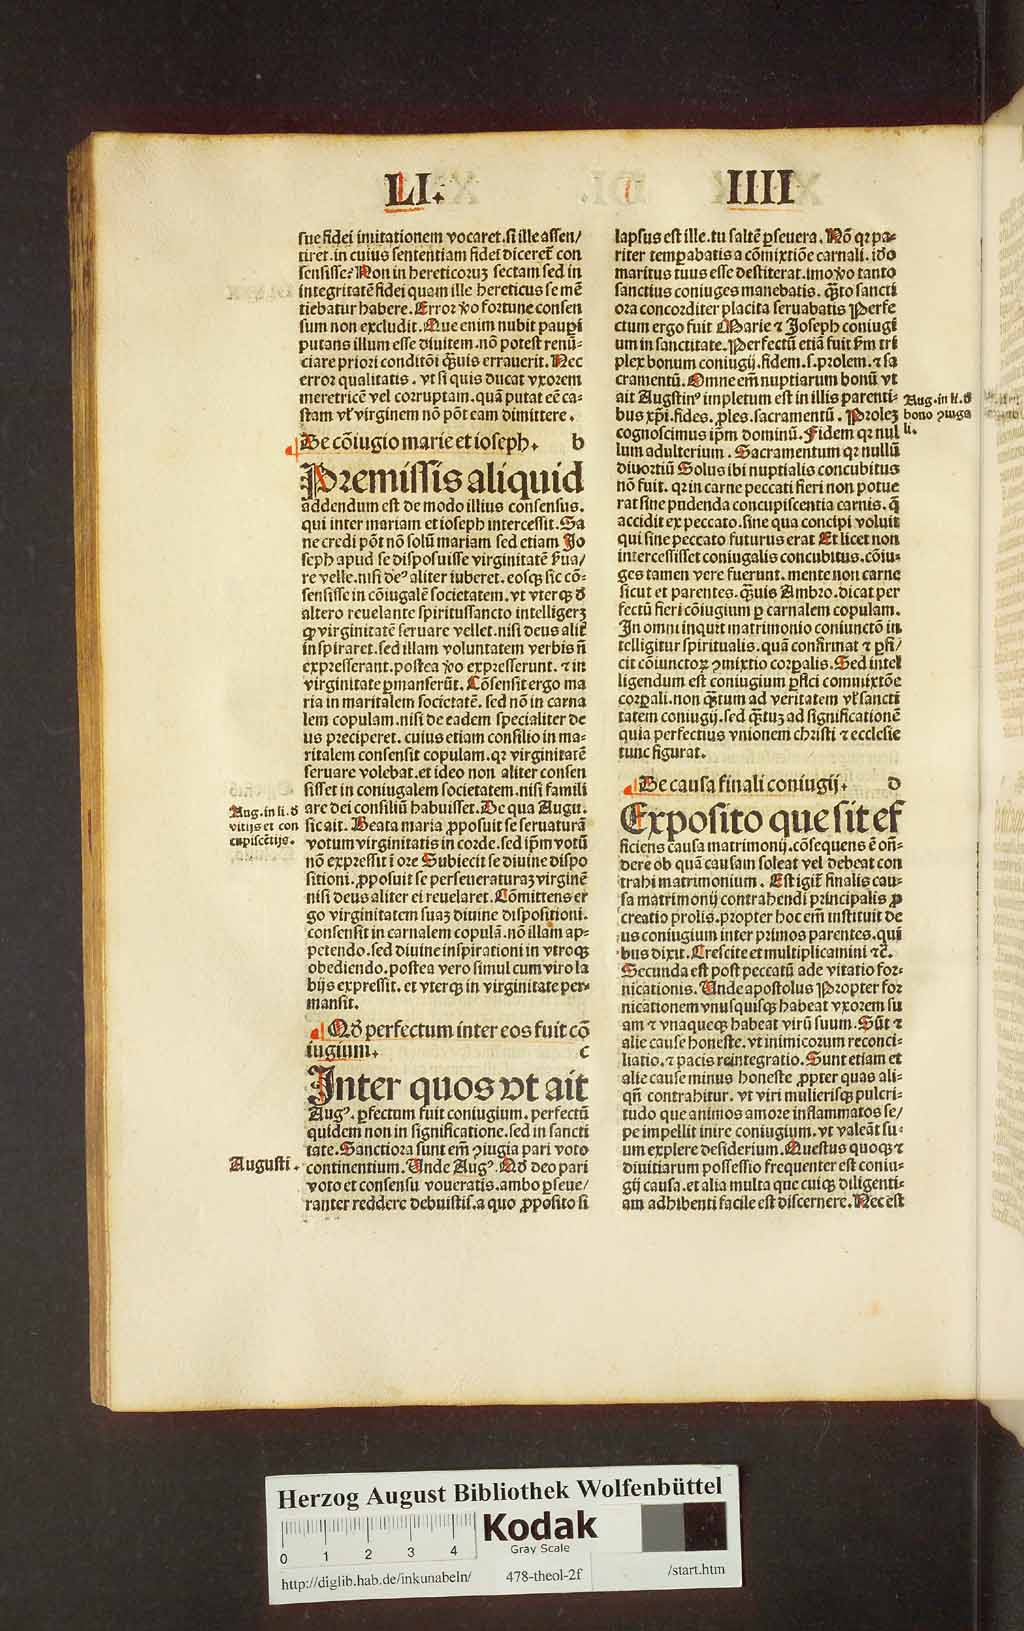 LI. IIII
sue fidei imitationem vocaret. si ille assen/
tiret. in cuius sententiam fidei diceret̉ con
sensisse? Non in hereticoruʒ sectam sed in
integritatē fidei quam ille hereticus se mē
tiebatur habere. Error ꝟo fortune consen
sum non excludit. Que enim nubit paupi
putans illum esse diuitem. nō potest renū-
ciare priori conditōi quis errauerit. Nec
error qualitatis. vt si quis ducat vxorem
meretricē vel corruptam. quā putat eē ca-
stam vł virginem nō pōt eam dimittere.
De cōiugio marie et ioseph. b
Premissis aliquid
addendum est de modo illius consensus.
qui inter mariam et ioseph intercessit. Sa
ne credi pōt nō solū mariam sed etiam Jo
seph apud se disposuisse virginitatē ẜua/
re velle. nisi deꝰ aliter iuberet. eosqʒ sic cō-
sensisse in cōiugalē societatem. vt vterqʒ đ
altero reuelante spiritussancto intelligerʒ
ꝙ virginitatē seruare vellet. nisi deus alit̉
inspiraret. sed illam voluntatem verbis n̄
expresserant. postea ꝟo expresserunt. ⁊ in
virginitate ꝑmanserūt. Cōsensit ergo ma
ria in maritalem societatē. sed nō in carna
lem copulam. nisi de eadem specialiter de
us preciperet. cuius etiam consilio in ma-
ritalem consensit copulam. qꝛ virginitatē
seruare volebat. et ideo non aliter consen
sisset in coniugalem societatem. nisi famili
are dei consiliū habuisset. De qua Augu.
sic ait. Beata maria ꝓposuit se seruaturā
votum virginitatis in corde. sed ipm votū
nō expressit ī ore Subiecit se diuine dispo
sitioni. ꝓposuit se perseueraturaʒ virginē
nisi deus aliter ei reuelaret. Cōmittens er
go virginitatem suaʒ diuine dispositioni.
consensit in carnalem copulā. nō illam ap-
petendo. sed diuine inspirationi in vtroqʒ
obediendo. postea vero simul cum viro la
bijs expressit. et vterqʒ in virginitate per-
mansit.
Qđ perfectum inter eos fuit cō
iugium. c
Inter quos vt ait
Augꝰ. ꝑfectum fuit coniugium. perfectū
quidem non in significatione. sed in sancti
tate. Sanctiora sunt em̄ ꝯiugia pari voto
continentium. Unde Augꝰ. Qđ deo pari
voto et consensu voueratis. ambo ꝑseue/
ranter reddere debuistis. a quo ꝓposito si
Aug. in li. đ
vitijs et con
cupiscētijs.
Augusti.
lapsus est ille. tu saltē ꝑseuera. Nō qꝛ pa-
riter tempabatis a cōmixtiōe carnali. iđo
maritus tuus esse destiterat. imo ꝟo tanto
sanctius coniuges manebatis. q̄to sancti
ora concorditer placita seruabatis Perfe
ctum ergo fuit Marie ⁊ Joseph coniugi
um in sanctitate. Perfectū etiā fuit ẜm tri
plex bonum coniugij. fidem. s. prolem. ⁊ sa
cramentū. Omne em̄ nuptiarum bonū vt
ait Augstinꝰ impletum est in illis parenti-
bus xp̄i. fides. ꝓles. sacramentū. Proleʒ
cognoscimus ipm̄ dominū. Fidem qꝛ nul
lum adulterium. Sacramentum qꝛ nullū
diuortiū Solus ibi nuptialis concubitus
nō fuit. qꝛ in carne peccati fieri non potue
rat sine pudenda concupiscentia carnis. q̄
accidit ex peccato. sine qua concipi voluit
qui sine peccato futurus erat Et licet non
intercessisset coniugalis concubitus. cōiu-
ges tamen vere fuerunt. mente non carne
sicut et parentes. Quis Ambro. dicat per
fectū fieri cōiugium ꝑ carnalem copulam.
In omni inquit matrimonio coniunctō in
telligitur spiritualis. quā confirmat ⁊ ꝑfi/
cit cōiunctoꝝ ꝯmixtio corꝑalis. Sed intel
ligendum est coniugium ꝑfici commixtōe
corꝑali. non q̄tum ad veritatem vł sancti
tatem coniugij. sed q̄tuʒ ad significationē
quia perfectius vnionem christi ⁊ ecclesie
tunc figurat.
De causa finali coniugij. d
Exposito que sit ef
ficiens causa matrimonij. cōsequens ē oñ-
dere ob quā causam soleat vel debeat con
trahi matrimonium. Est igit̉ finalis cau-
sa matrimonij contrahendi principalis ꝓ
creatio prolis. propter hoc em̄ instituit de
us coniugium inter primos parentes. qui
bus dixit. Crescite et multiplicamini ⁊c̄.
Secunda est post peccatū ade vitatio for-
nicationis. Unde apostolus Propter for
nicationem vnusquisqʒ habeat vxorem su
am ⁊ vnaquecʒ habeat virū suum. Sūt ⁊
alie cause honeste. vt inimicorum reconci-
liatio. ⁊ pacis reintegratio. Sunt etiam et
alie cause minus honeste ꝓpter quas ali-
qn̄ contrahitur. vt viri mulierisqʒ pulcri-
tudo que animos amore inflammatos se/
pe impellit inire coniugium. vt valeāt su-
um explere desiderium. Questus quoqʒ ⁊
diuitiarum possessio frequenter est coniu-
gij causa. et alia multa que cuiqʒ diligenti-
am adhibenti facile est discernere. Nec est
Aug. in li. đ
bono ꝯiuga
li.
Herzog August Bibliothek Wolfenbüttel
0 1 2 3 4
Kodak
Gray Scale
http://diglib.hab.de/inkunabeln/ 478-theol-2f /start.htm